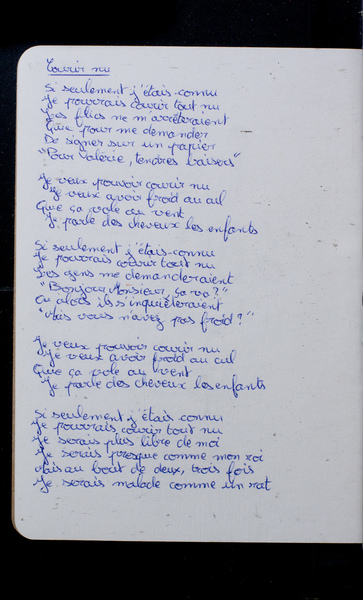 Courir nu
Si seulement j'étais connu
Je pourrais courir tout nu
Les flics ne m'arrêteraient
Que pour me demander
De signer sur un papier
"Pour Valérie, tendres baisers"
Je veux pouvoir courir nu
Je veux avoir froid au cul
Que ça vole au vent
Je parle des cheveux les enfants
Si seulement j'étais connu
Je pourrais courir tout nu
Les gens me demanderaient
"Bonjour Monsieur, ça va?"
Ou alors ils s'inquièteraient
"Mais vous n'avez pas froid?"
Je veux pouvoir courir nu
Je veux avoir froid au cul
Que ça vole au vent
Je parle des cheveux les enfants
Si seulement j'étais connu
Je pourrais courir tout nu
Je serais plus libre de moi
Je serais presque comme mon roi
Mais au bout de deux, trois fois
Je serais malade comme un rat